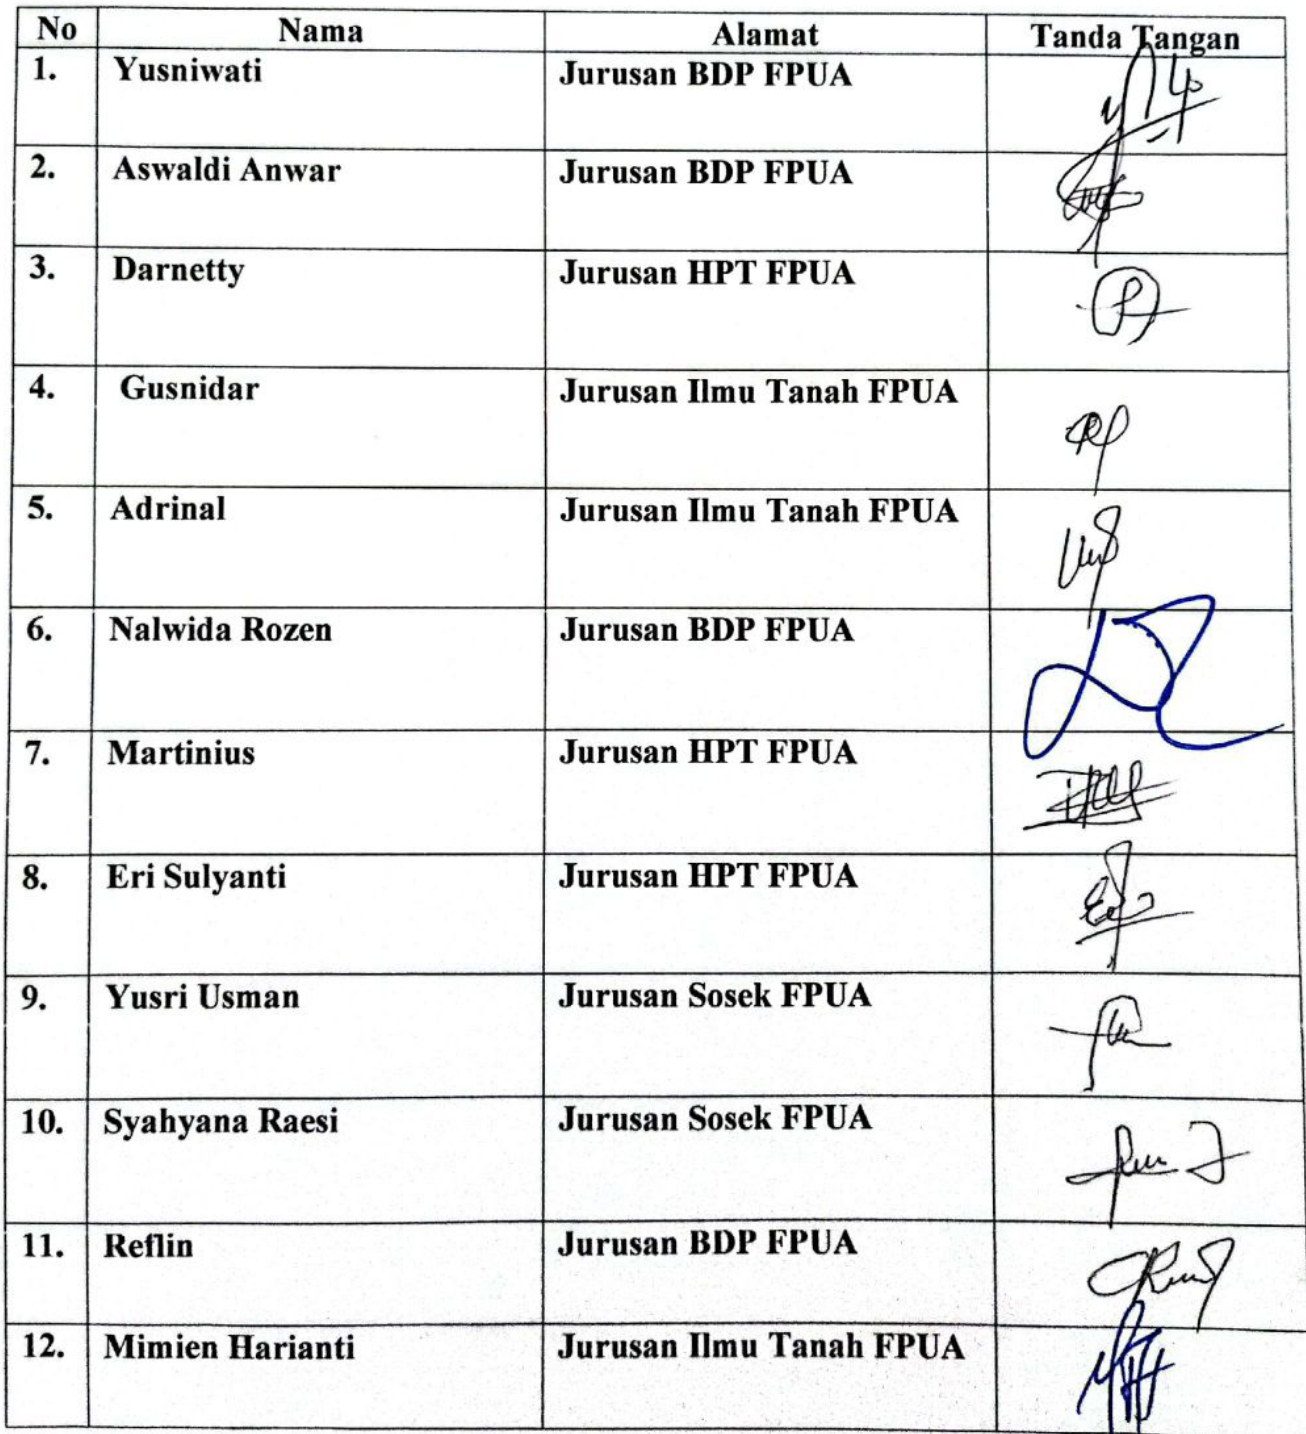 No Nama Alamat Tanda Tangan
1. Yusniwati Jurusan BDP FPUA
2. Aswaldi Anwar Jurusan BDP FPUA
3. Darnetty Jurusan HPT FPUA
4. Gusnidar Jurusan Ilmu Tanah FPUA
5. Adrinal Jurusan Ilmu Tanah FPUA
6. Nalwida Rozen Jurusan BDP FPUA
7. Martinius Jurusan HPT FPUA
8. Eri Sulyanti Jurusan HPT FPUA
9. Yusri Usman Jurusan Sosek FPUA
10. Syahyana Raesi Jurusan Sosek FPUA
11. Reflin Jurusan BDP FPUA
12. Mimien Harianti Jurusan Ilmu Tanah FPUA